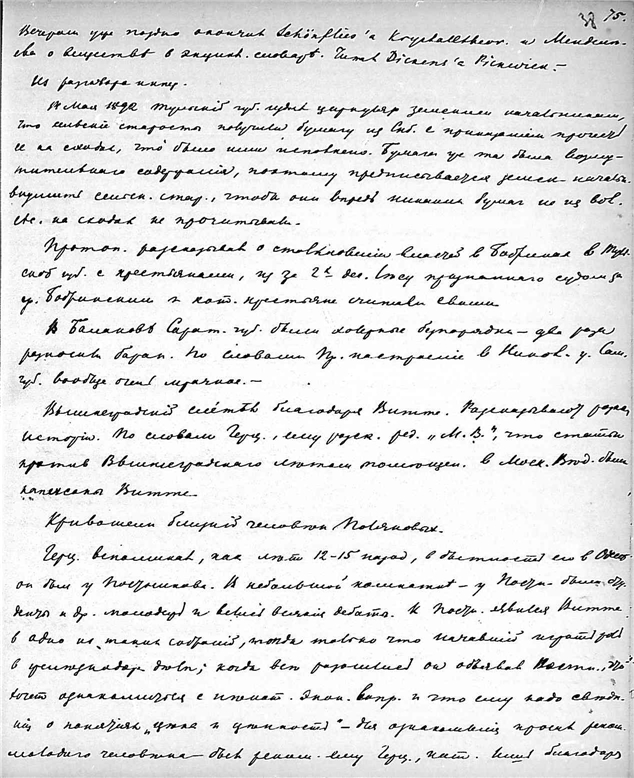 38 75.
Вечером уже поздно окончил Schönflies'a Krystalltheor. и Менделе-
ева о веществе в энцикл. словаре. Читал Dickens'a Pickwick. –
Из разговора
Мая 1892 тульский губ. циркуляр земским начальникам,
что сельские старосты получили бумагу из Спб. с приказанием прочесть
ее на сходах, что было ими исполнено. Бумага уже та была возму-
тительного содержания, поэтому предписывается земск. началь.
внушить сельск. стар., чтобы они впредь никаких бумаг не из вол.
на сходах не прочитывали.
Протоп. рассказывал о столкновении властей в Бобриках в Туль-
ской губ. с крестьянами, из за 2х дес. лесу признанного судом за
гр. Бобринским и кот. крестьяне считали своим
В Балашове Сарат. губ. были холерные беспорядки – два раза
разносили барак. По словам Пр. настроение в Никол. у. Сам.
губ. вообще очень мрачное. –
Вышнеградский слетел благодаря Витте. Рассказывают разные
истории. По словам Герц., ему расск. ред. „М. В.", что статьи
против Вышнеградского помещен. в Моск. Вед. были
написаны Витте.
Кривошеин близкий человек
Герц. вспоминал, как лет 12-15 назад, в бытность его в Одессе
он был у Постникова. В небольшой комнатке – у Постн. были
и др. молодежь и велись всякие дебаты. К Постн. явился Витте
в одно из таких собраний, тогда только что начавший играть роль
в железнодор. деле; когда все разошлись он объявил Постн., что
хочет ознакомиться с полит. экон. вопр. и что ему надо сведе-
ний о понятиях „цена и ценность" – для ознакомления просил реком.
молодого человека – был реком. ему Герц., благодаря